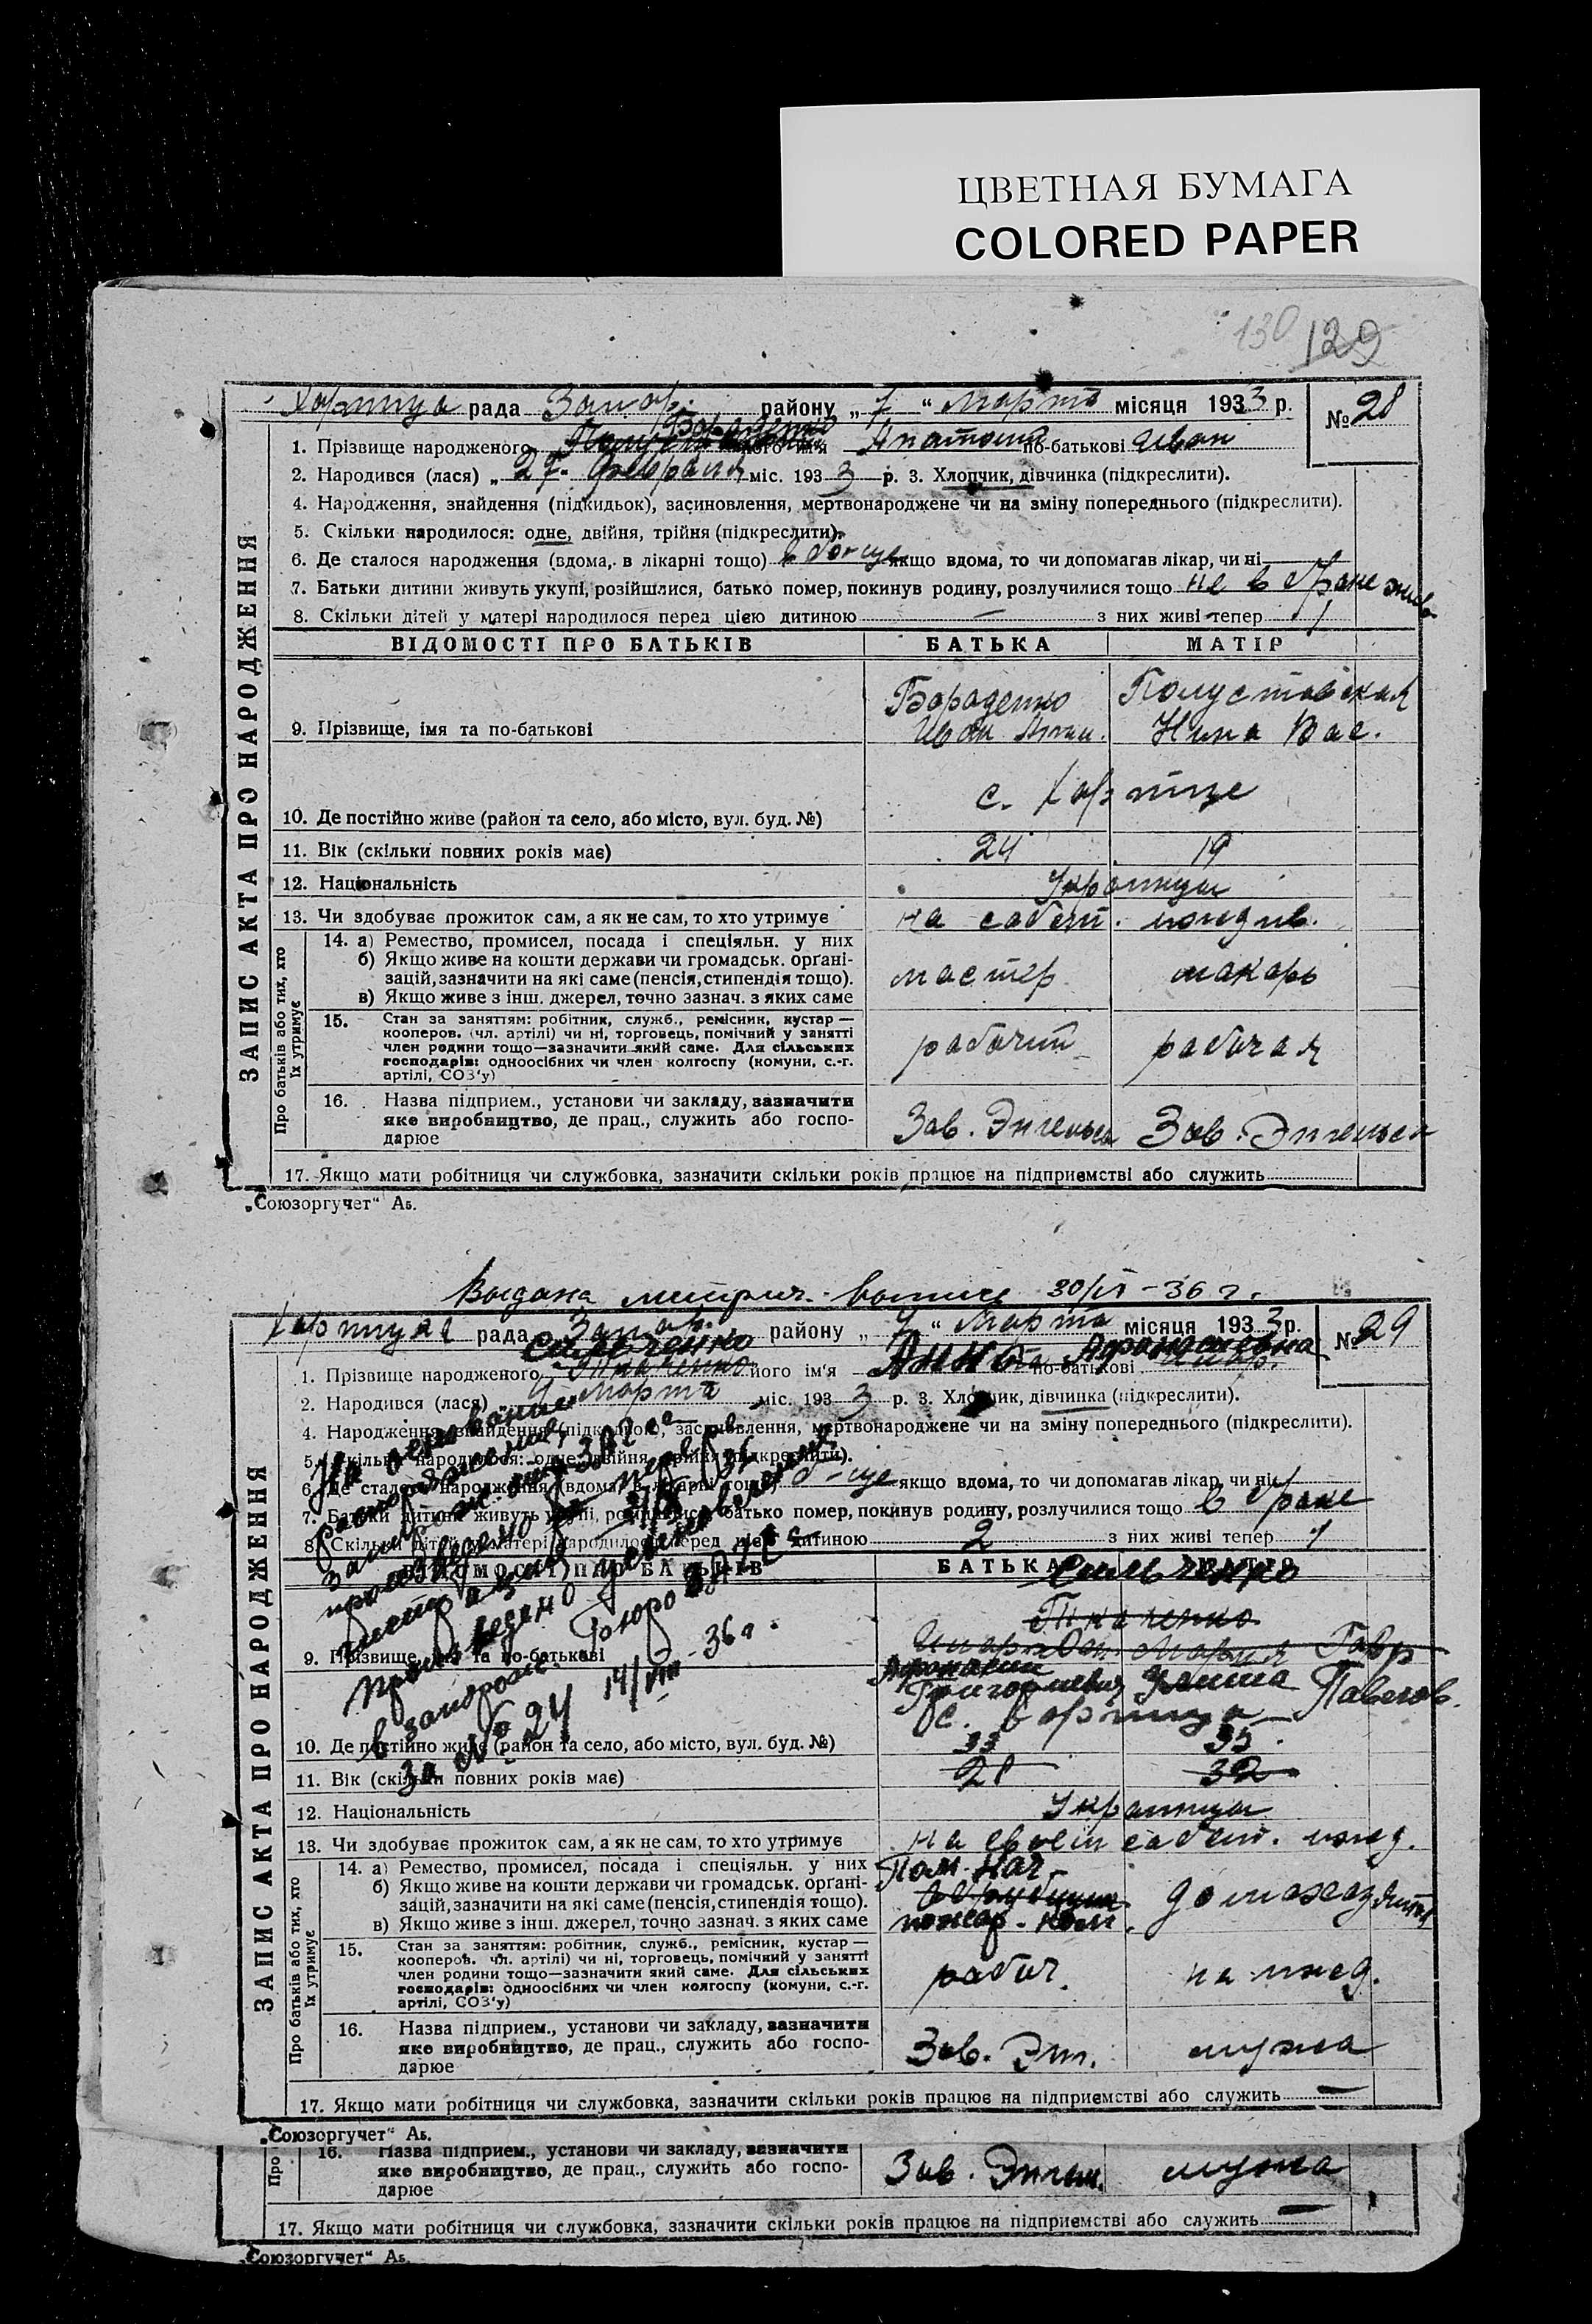 ЦВЕТНАЯ БУМАГА
COLORED PAPER
130 129
Хортица рада Запор. району „ 7 “ Марта місяця 193 3 р. № 28
Бороденко
1. Прізвище народженого його ім'я Анатолий по-батькові Иван
2. Народився (лася) „ 27 Февраля міс. 193 3 р. 3. Хлопчик, дівчинка (підкреслити).
4. Народження, знайдення (підкидьок), засиновлення, мертвонароджене чи на зміну попереднього (підкреслити).
5. Скільки народилося: одне, двійня, трійня (підкреслити).
6. Де сталося народження (вдома, в лікарні тощо) в б-це якщо вдома, то чи допомагав лікар, чи ні
7. Батьки дитини живуть укупі, розійшлися, батько помер, покинув родину, розлучилися тощо не в браке
8. Скільки дітей у матері народилося перед цією дитиною — з них живі тепер
ЗАПИС АКТА ПРО НАРОДЖЕННЯ
ВІДОМОСТІ ПРО БАТЬКІВ БАТЬКА МАТІР
Бороденко Полуставская
9. Прізвище, імя та по-батькові Иван Нина Вас.
с. Хортице
10. Де постійно живе (район та село, або місто, вул. буд. №)
11. Вік (скільки повних років має) 24 19
12. Національність Украинцы
13. Чи здобуває прожиток сам, а як не сам, то хто утримує на собст. иждив.
Про батьків або тих, хто їх утримує
14. а) Ремество, промисел, посада і спеціяльн. у них
б) Якщо живе на кошти держави чи громадськ. орґані-
зацій, зазначити на які саме (пенсія, стипендія тощо). мастер токарь
в) Якщо живе з інш. джерел, точно зазнач. з яких саме
15. Стан за заняттям: робітник, служб., ремісник, кустар —
кооперов. (чл. артілі) чи ні, торговець, помічний у занятті
член родини тощо—зазначити який саме. Для сільських рабочий рабочая
господарів: одноосібних чи член колгоспу (комуни, с.-г.
артілі, СОЗ'у)
16. Назва підприєм., установи чи закладу, зазначити
яке виробництво, де прац., служить або госпо- Зав. Энгельса Зав. Энгельса
дарює
17. Якщо мати робітниця чи службовка, зазначити скільки років працює на підприємстві або служить
„Союзоргучет“ Аб.
Выдана метрич. 36 г.
Хортицая рада Запор. району „ 7 “ Марта місяця 193 3 р. № 29
Сильченко Афанасьевна
1. Прізвище народженого Ткаченко його ім'я Анна по-батькові
2. Народився (лася) 4 Марта міс. 193 3 р. 3. Хлопчик, дівчинка (підкреслити).
4. Народження, знайдення (підкидьок), засиновлення, мертвонароджене чи на зміну попереднього (підкреслити).
5. Скільки народилося: одне, двійня, трійня (підкреслити).
6. Де сталося народження (вдома, в лікарні тощо) б-це якщо вдома, то чи допомагав лікар, чи ні
7. Батьки дитини живуть укупі, розійшлися, батько помер, покинув родину, розлучилися тощо в браке
8. Скільки дітей у матері народилося перед цією дитиною 2 з них живі тепер 1
На основании
произведено
Произведено усыновление
в Запорож. Бюро ЗАГС
За № 24 14/VIII 36 г.
ЗАПИС АКТА ПРО НАРОДЖЕННЯ
ВІДОМОСТІ ПРО БАТЬКІВ БАТЬКА МАТІР
Сильченко
Ткаченко
Мария Гавр
9. Прізвище, імя та по-батькові Афанасий
Григориевич Павлов.
с. Хортица
10. Де постійно живе (район та село, або місто, вул. буд. №) 33 35
11. Вік (скільки повних років має) 28 32
12. Національність Украинцы
13. Чи здобуває прожиток сам, а як не сам, то хто утримує на своем собст. ижд.
Про батьків або тих, хто їх утримує
14. а) Ремество, промисел, посада і спеціяльн. у них Пом. Нач.
б) Якщо живе на кошти держави чи громадськ. орґані-
зацій, зазначити на які саме (пенсія, стипендія тощо). домохоз
в) Якщо живе з інш. джерел, точно зазнач. з яких саме пожар. ком.
15. Стан за заняттям: робітник, служб., ремісник, кустар —
кооперов. чл. артілі) чи ні, торговець, помічний у занятті
член родини тощо—зазначити який саме. Для сільських рабоч. на ижд.
господарів: одноосібних чи член колгоспу (комуни, с.-г.
артілі, СОЗ'у)
16. Назва підприєм., установи чи закладу, зазначити
яке виробництво, де прац., служить або госпо- Зав. Энг. мужа
дарює
17. Якщо мати робітниця чи службовка, зазначити скільки років працює на підприємстві або служить —
„Союзоргучет“ Аб.
Про
16. Назва підприєм., установи чи закладу, зазначити
яке виробництво, де прац., служить або госпо- Зав. Энгел. мужа
дарює
17. Якщо мати робітниця чи службовка, зазначити скільки років працює на підприємстві або служить —
„Союзоргучет“ Аб.